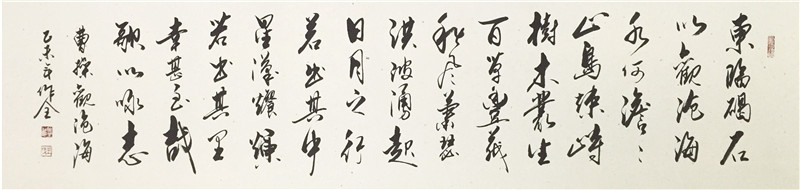 東臨碣石
以觀滄海
水何澹々
山島竦峙
樹木叢生
百草豐茂
秋風蕭瑟
洪波湧起
日月之行
若出其中
星漢燦爛
若出其里
幸甚至哉
歌以咏志
曹操觀滄海
乙未年作全